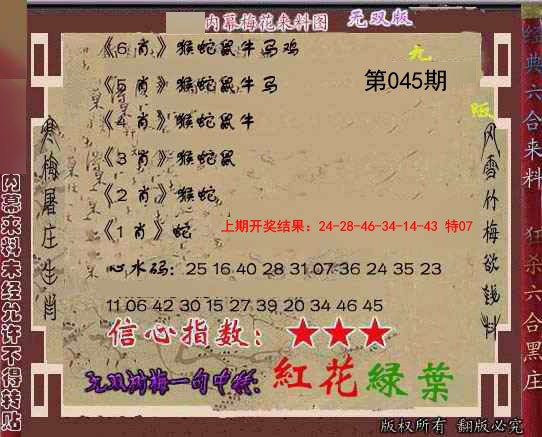 内幕梅花来料图 无双版
《6肖》猴蛇鼠牛马鸡
《5肖》猴蛇鼠牛马
第045期
《4肖》猴蛇鼠牛
《3肖》猴蛇鼠
《2肖》猴蛇
《1肖》蛇
上期开奖结果：24-28-46-34-14-43 特07
心水码：25 16 40 28 31 07 36 24 35 23
11 06 42 30 15 27 39 20 34 46 45
信心指数：★★★
无双 梅一句中特：紅花緑葉
版权所有 翻版必究
寒梅居庄生肖
风雪竹梅欲钱料
内幕来料未经允许不得转贴
经典六合来料
狂杀六合黑庄